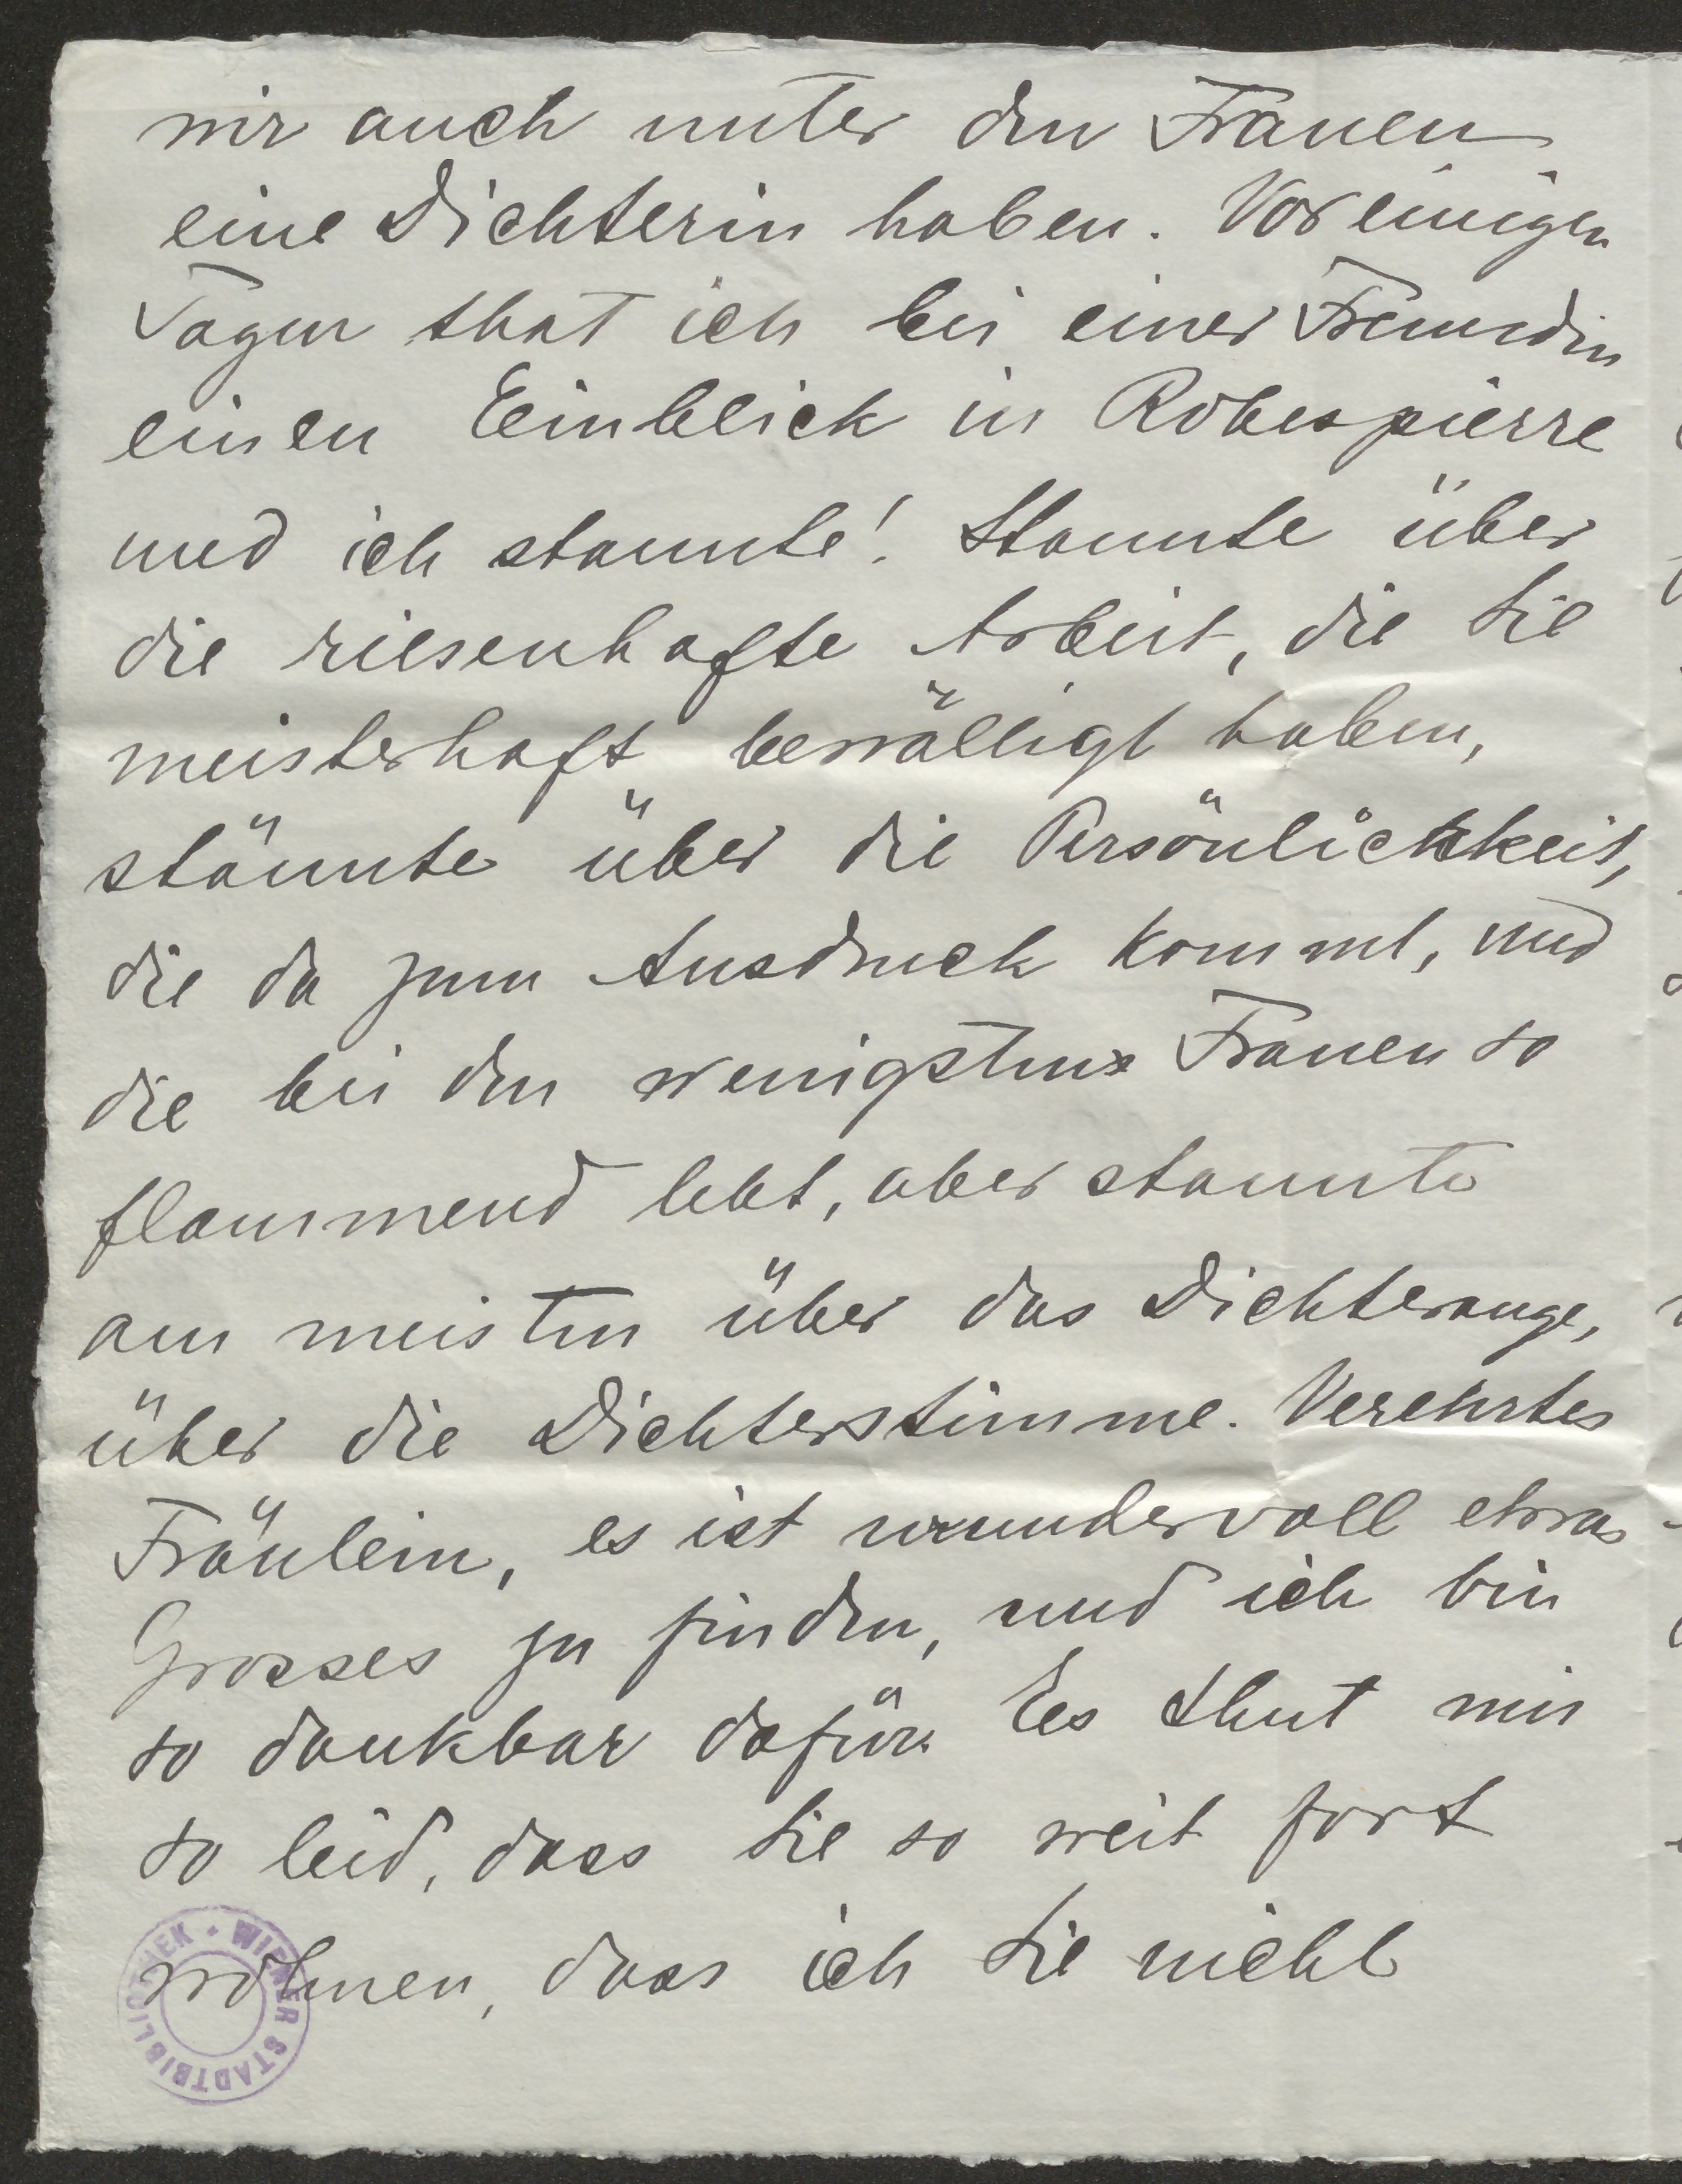 wir auch unter den Frauen
eine Dichterin haben. Vor einigen
Tagen that ich bei einer Freundin
einen Einblick in Robespierre
und ich staunte! Staunte über
die riesenhafte Arbeit, die Sie
meisterhaft bewältigt haben,
staunte über die Persönlichkeit,
die da zum Ausdruck kommt, und
die bei den wenigsten Frauen so
flammend lebt, aber staunte
am meisten über das Dichterauge,
über die Dichterstimme. Verehrtes
Fräulein, es ist wundervoll etwas
Grosses zu finden, und ich bin
so dankbar dafür. Es thut mir
so leid, dass Sie so weit fort
wohnen, dass ich Sie nicht
WIENER STADTBIBLIOTHEK